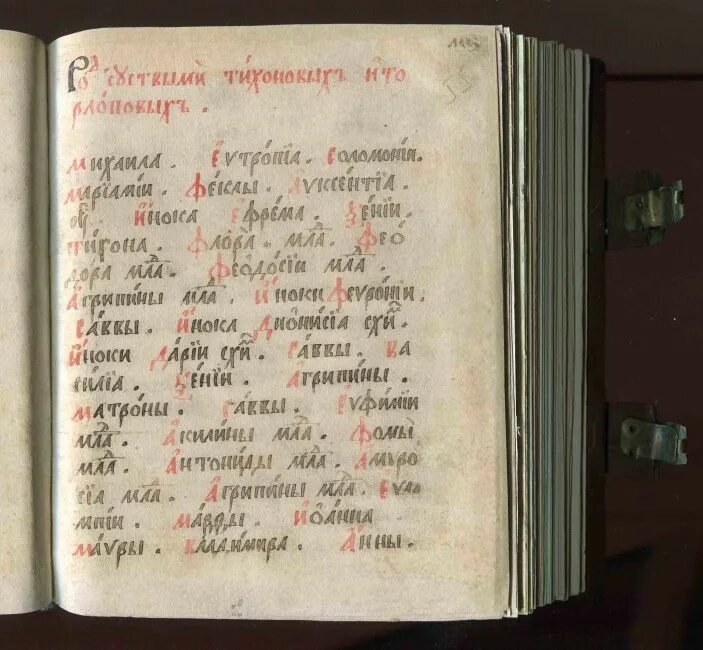 Ро
михаила . Еѵтропїа . Соломонїи .
Марїамїи . Феклы . Аѵксентїа .
Инока Ефрема . Ѯенїи .
Тихона . Флора . мла . Фео
дора мла . Феодосїи мла .
Агрипины мла . Иноки Феѵронїи .
Саввы . Инока Дионисїа схи .
Иноки Дарїи схи . Саввы . Ва
силїа . Ѯенїи . Агрипины .
Матроны . Саввы . Еѵфимїи
мла . Акилины мла . Фомы
мла . Антониды мла . Амъро
сїа мла . Агрипины мла . Еѵла
мпїи . Марѳы . Иоанна
Маѵры . Владимира . Анны .